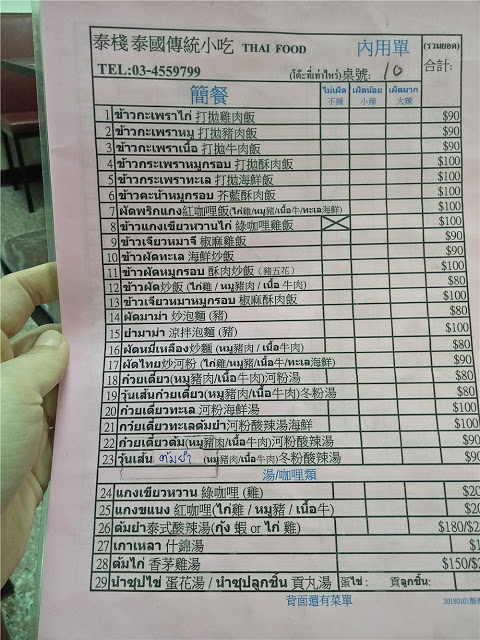 泰棧 泰國傳統小吃 THAI FOOD 內用單 (รวมยอด)
TEL:03-4559799 (โต๊ะที่เท่าไหร่) 桌號: 10 合計:
簡餐 ไม่เผ็ด 不辣 เผ็ดน้อย 小辣 เผ็ดมาก 大辣
1 ข้าวกะเพราไก่ 打拋雞肉飯 $90
2 ข้าวกะเพราหมู 打拋豬肉飯 $90
3 ข้าวกะเพราเนื้อ 打拋牛肉飯 $90
4 ข้าวกระเพราหมูกรอบ 打拋酥肉飯 $100
5 ข้าวกระเพราทะเล 打拋海鮮飯 $100
6 ข้าวคะน้าหมูกรอบ 芥藍酥肉飯 $100
7 ผัดพริกแกง紅咖哩飯(ไก่雞/หมู豬/เนื้อ牛/ทะเล海鮮) $100
8 ข้าวแกงเขียวหวานไก่ 綠咖哩雞飯 $100
9 ข้าวเจียวหมาจี 椒麻雞飯 $90
10 ข้าวผัดทะเล 海鮮炒飯 $90
11 ข้าวผัดหมูกรอบ 酥肉炒飯 (豬五花) $100
12 ข้าวผัด炒飯 (ไก่雞 / หมู豬 / เนื้อ 牛肉) $80
13 ข้าวเจียวหมาหมูกรอบ 椒麻酥肉飯 $100
14 ผัดมาม่า 炒泡麵 (豬) $80
15 ยำมาม่า 涼拌泡麵 (豬) $100
16 ผัดหมี่เหลือง炒麵 (หมู豬肉 / เนื้อ牛肉) $80
17 ผัดไทย炒河粉 (ไก่雞/หมู豬/เนื้อ牛/ทะเล海鮮) $90
18 ก๋วยเตี๋ยว(หมู豬肉/เนื้อ牛肉)河粉湯 $80
19 วุ้นเส้นก๋วยเตี๋ยว(หมู豬肉/เนื้อ牛肉)冬粉湯 $80
20 ก๋วยเตี๋ยวทะเล 河粉海鮮湯 $100
21 ก๋วยเตี๋ยวทะเลต้มยำ河粉酸辣湯海鮮 $100
22 ก๋วยเตี๋ยวต้ม(หมู豬肉/เนื้อ牛肉)河粉酸辣湯 $90
23 วุ้นเส้น ต้มยำ (หมู豬肉/เนื้อ牛肉)冬粉酸辣湯 $90
湯/咖哩類
24 แกงเขียวหวาน 綠咖哩 (雞) $20
25 แกงแขนง 紅咖哩(ไก่雞 / หมู豬 / เนื้อ牛) $20
26 ต้มยำ泰式酸辣湯(กุ้ง 蝦 or ไก่ 雞) $180/$2
27 เกาเหลา 什錦湯 $1
28 ต้มไก่ 香茅雞湯 $150/$2
29 น้ำซุปไข่ 蛋花湯 / น้ำซุปลูกชิ้น 貢丸湯 蛋ไข่: 貢ลูกชิ้น:
背面還有菜單 20180101